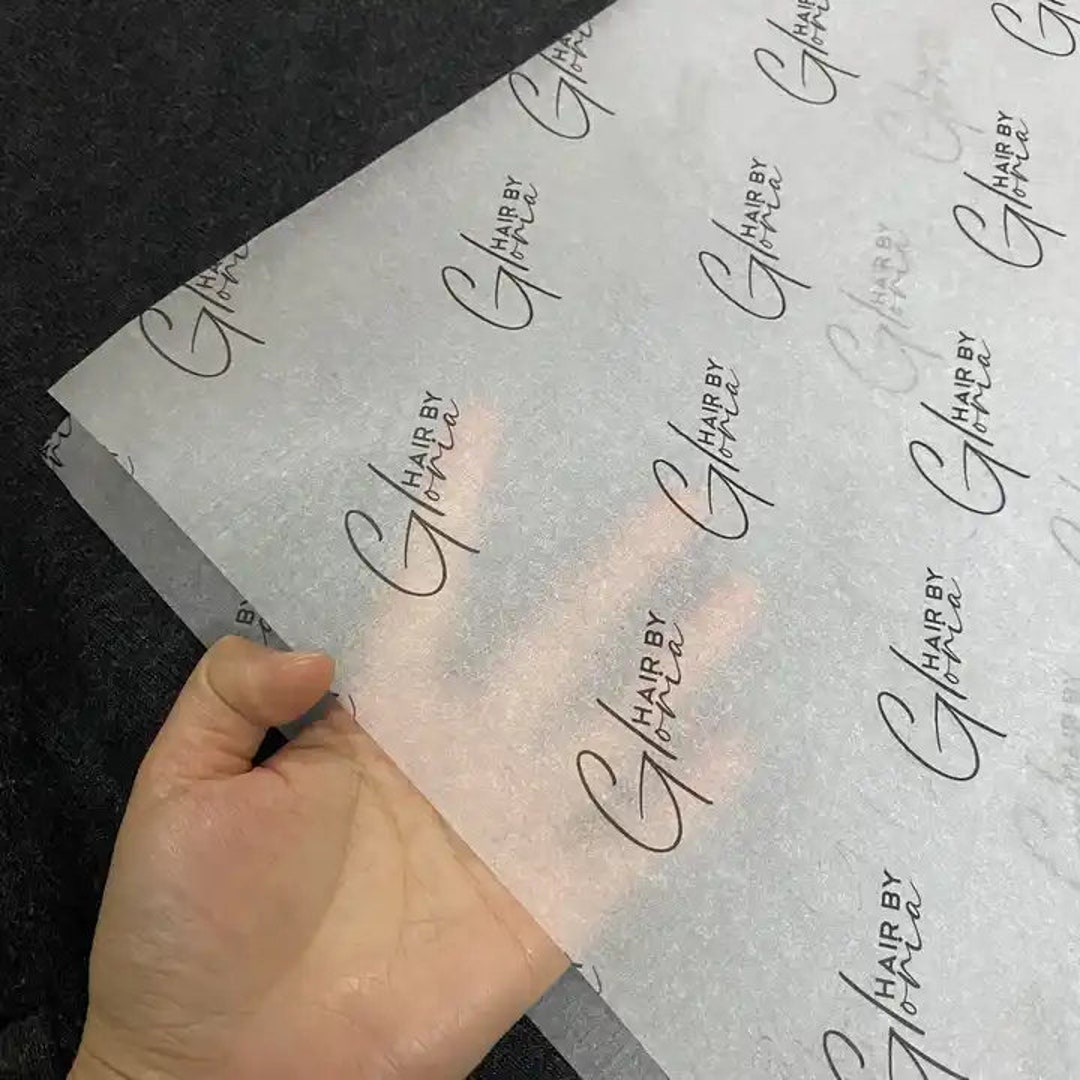 HAIR BY
Gloria
HAIR BY
Gloria
HAIR BY
Gloria
HAIR BY
Gloria
HAIR BY
Gloria
HAIR BY
Gloria
HAIR BY
Gloria
HAIR BY
Gloria
HAIR BY
Gloria
HAIR BY
Gloria